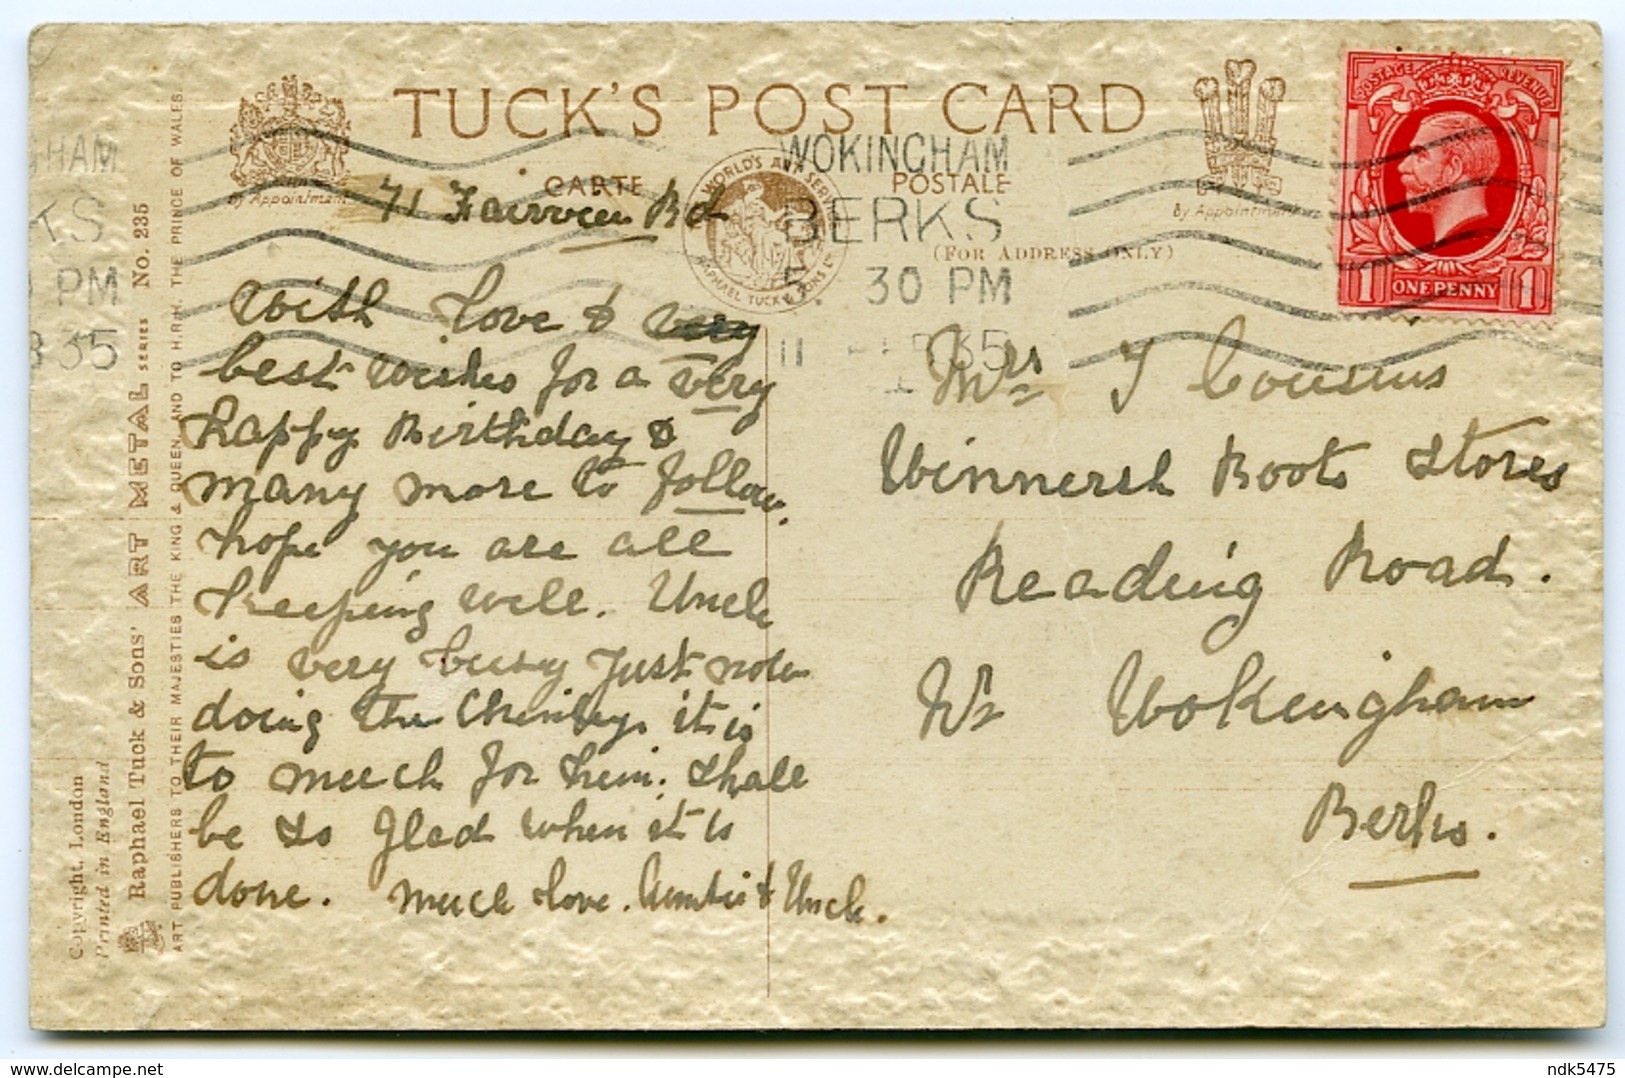 TUCK'S POST CARD
CARTE POSTALE
(FOR ADDRESS ONLY)
By Appointment
By Appointment
WORLD'S ART SERVICE
RAPHAEL TUCK & SONS LTD
WOKINGHAM
BERKS
5. 30 PM
11
35
GHAM
TS
PM
35
POSTAGE REVENUE
1 ONE PENNY 1
71 Fairview Rd
With love & very
best wishes for a very
happy Birthday &
many more to follow.
hope you are all
keeping well. Uncle
is very busy Just now
doing the it is
to much for him. Shall
be so glad when it is
done. Much love. Auntie & Uncle.
Mrs J Cousins
Winnersh Boots Stores
Reading Road.
Nr Wokingham
Berks.
Copyright, London
Printed in England
Raphael Tuck & Sons' ART METAL SERIES No. 235
ART PUBLISHERS TO THEIR MAJESTIES THE KING & QUEEN, AND TO H.R.H. THE PRINCE OF WALES.
ndk5475